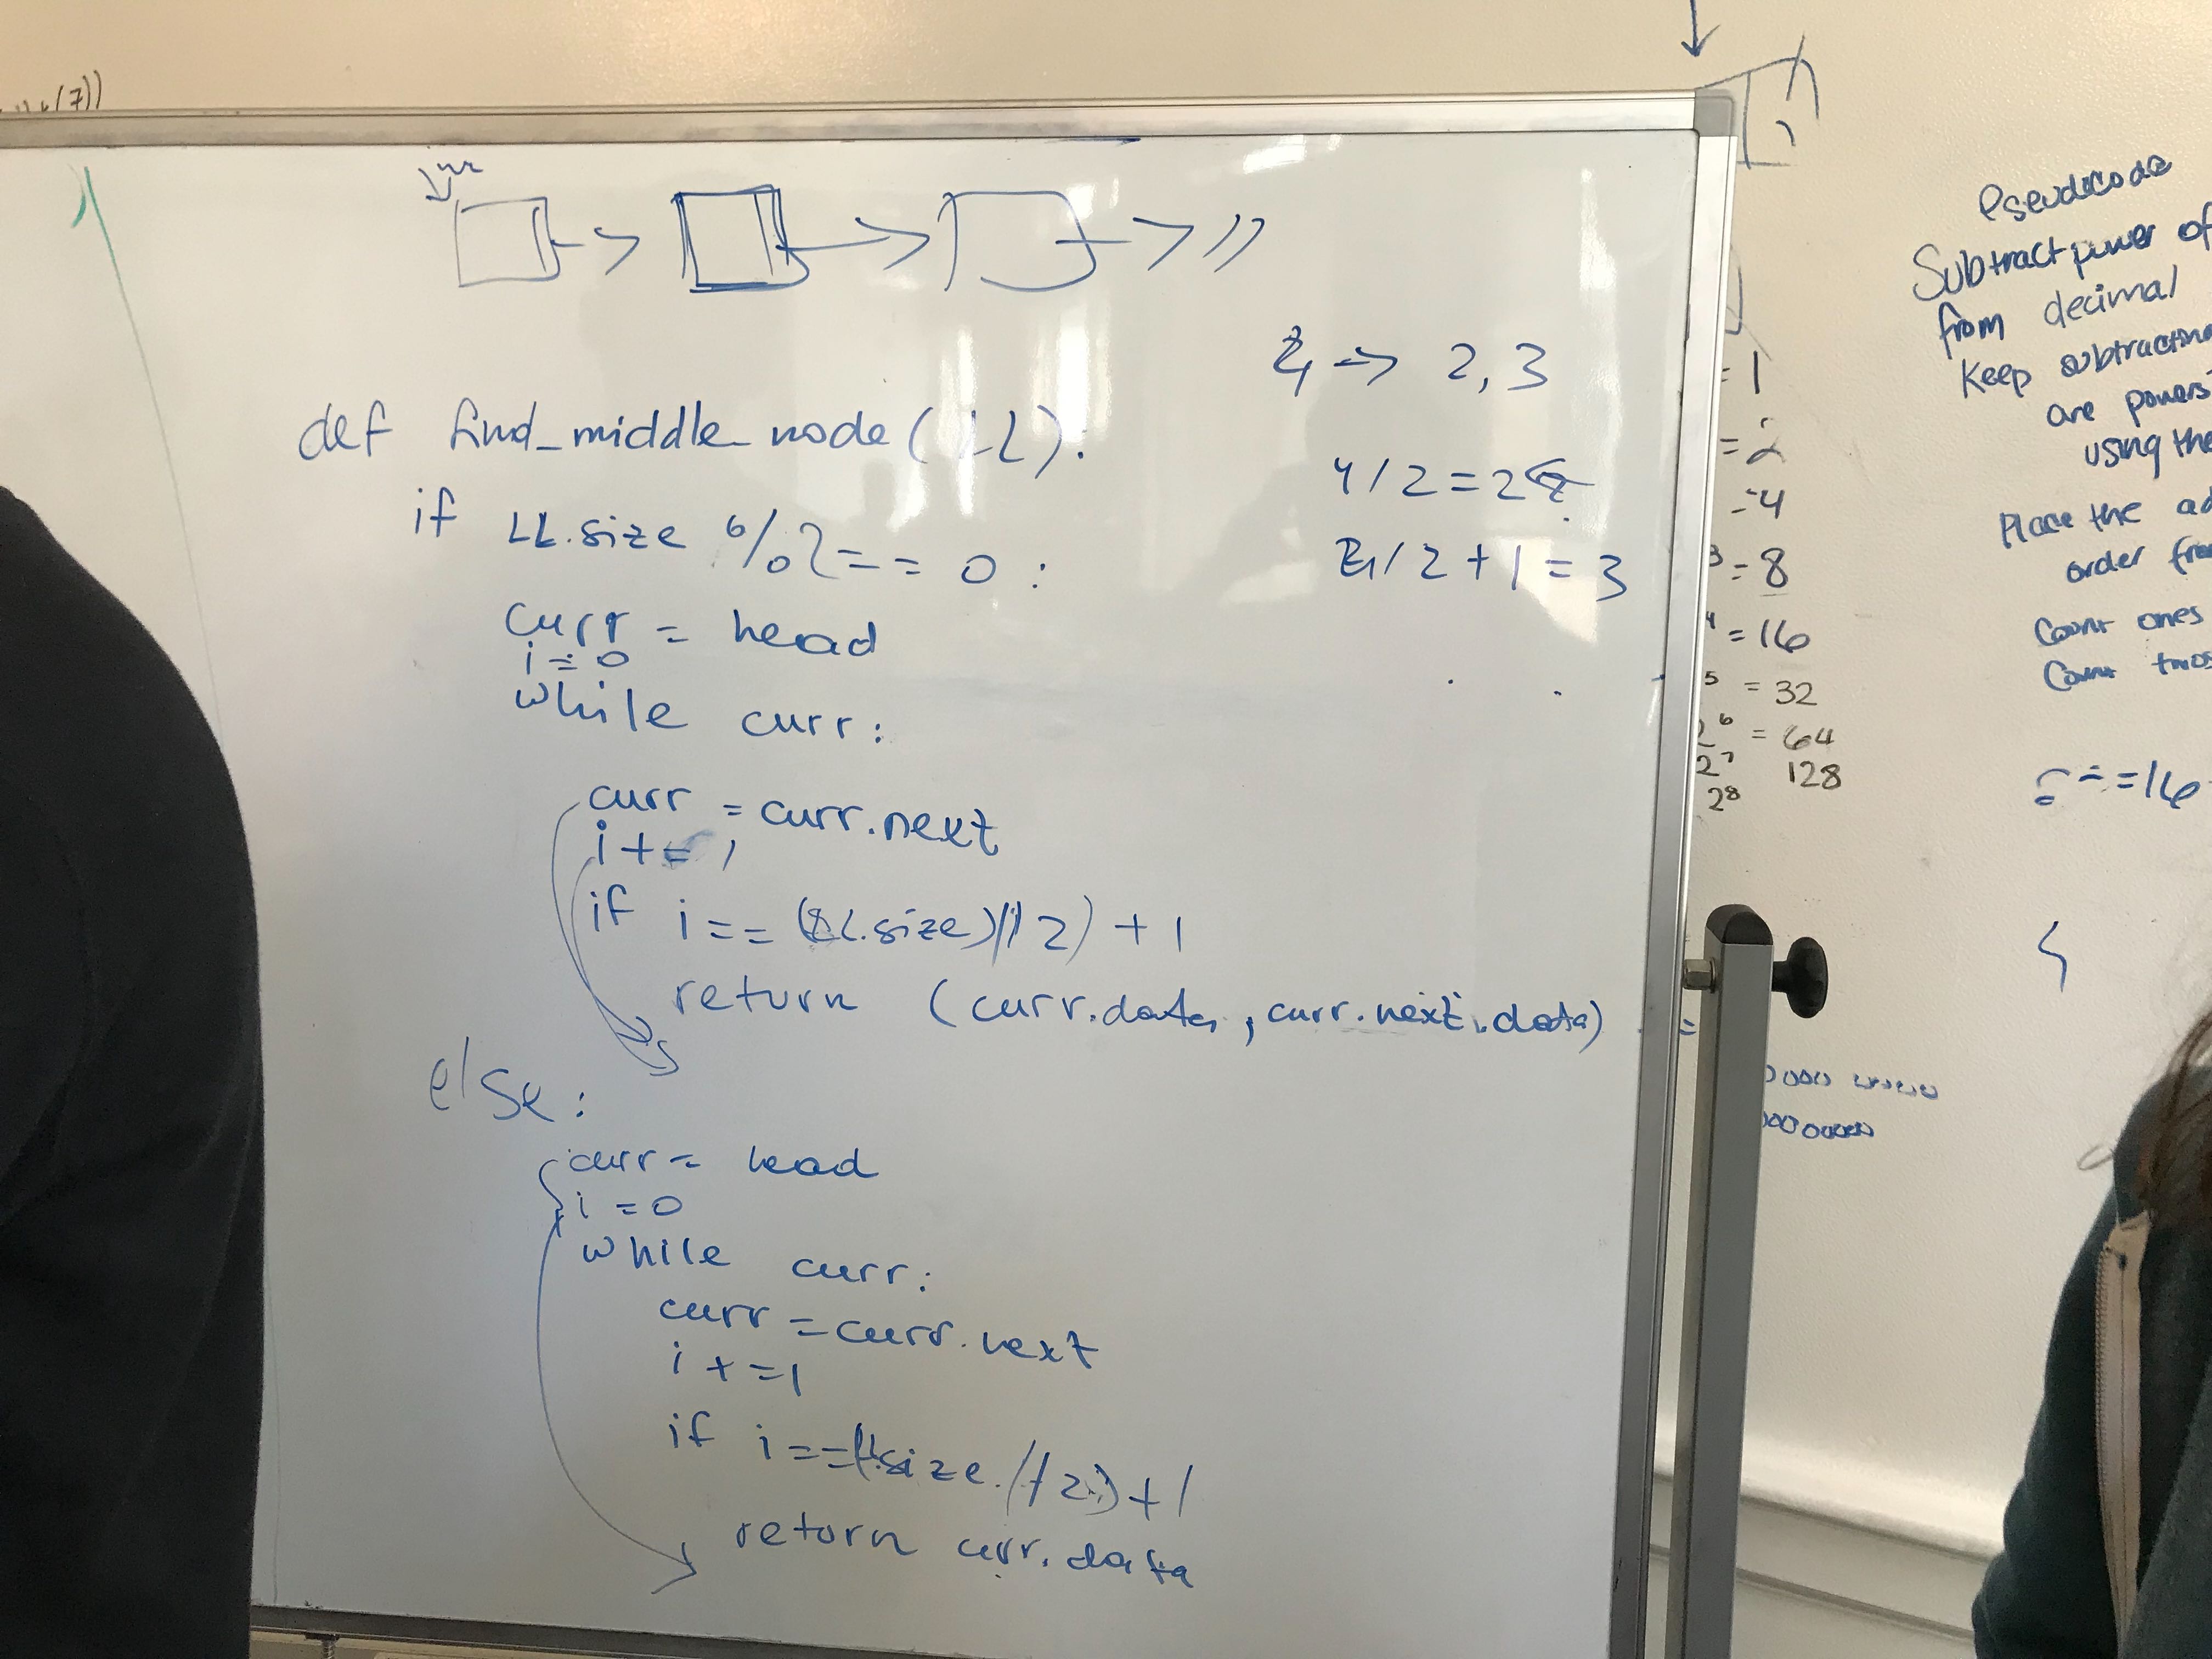 (7))
4 -> 2, 3
def find_middle_node(LL):
4/2=2
if LL.size %2 == 0 :
4/2+1=3
curr = head
i = 0
while curr:
curr = curr.next
i += 1
if i == (LL.size)//2) + 1
return (curr.data, curr.next.data)
else:
curr = head
i = 0
while curr:
curr = curr.next
i += 1
if i == (LL.size//2)+1
return curr.data
= 1
= 2
= 4
3 = 8
4 = 16
5 = 32
2⁶ = 64
2⁷ 128
2⁸
Pseudocode
Subtract power of
from decimal
Keep subtracting
are powers
using the
Place the
order
Count ones
Count twos
=16